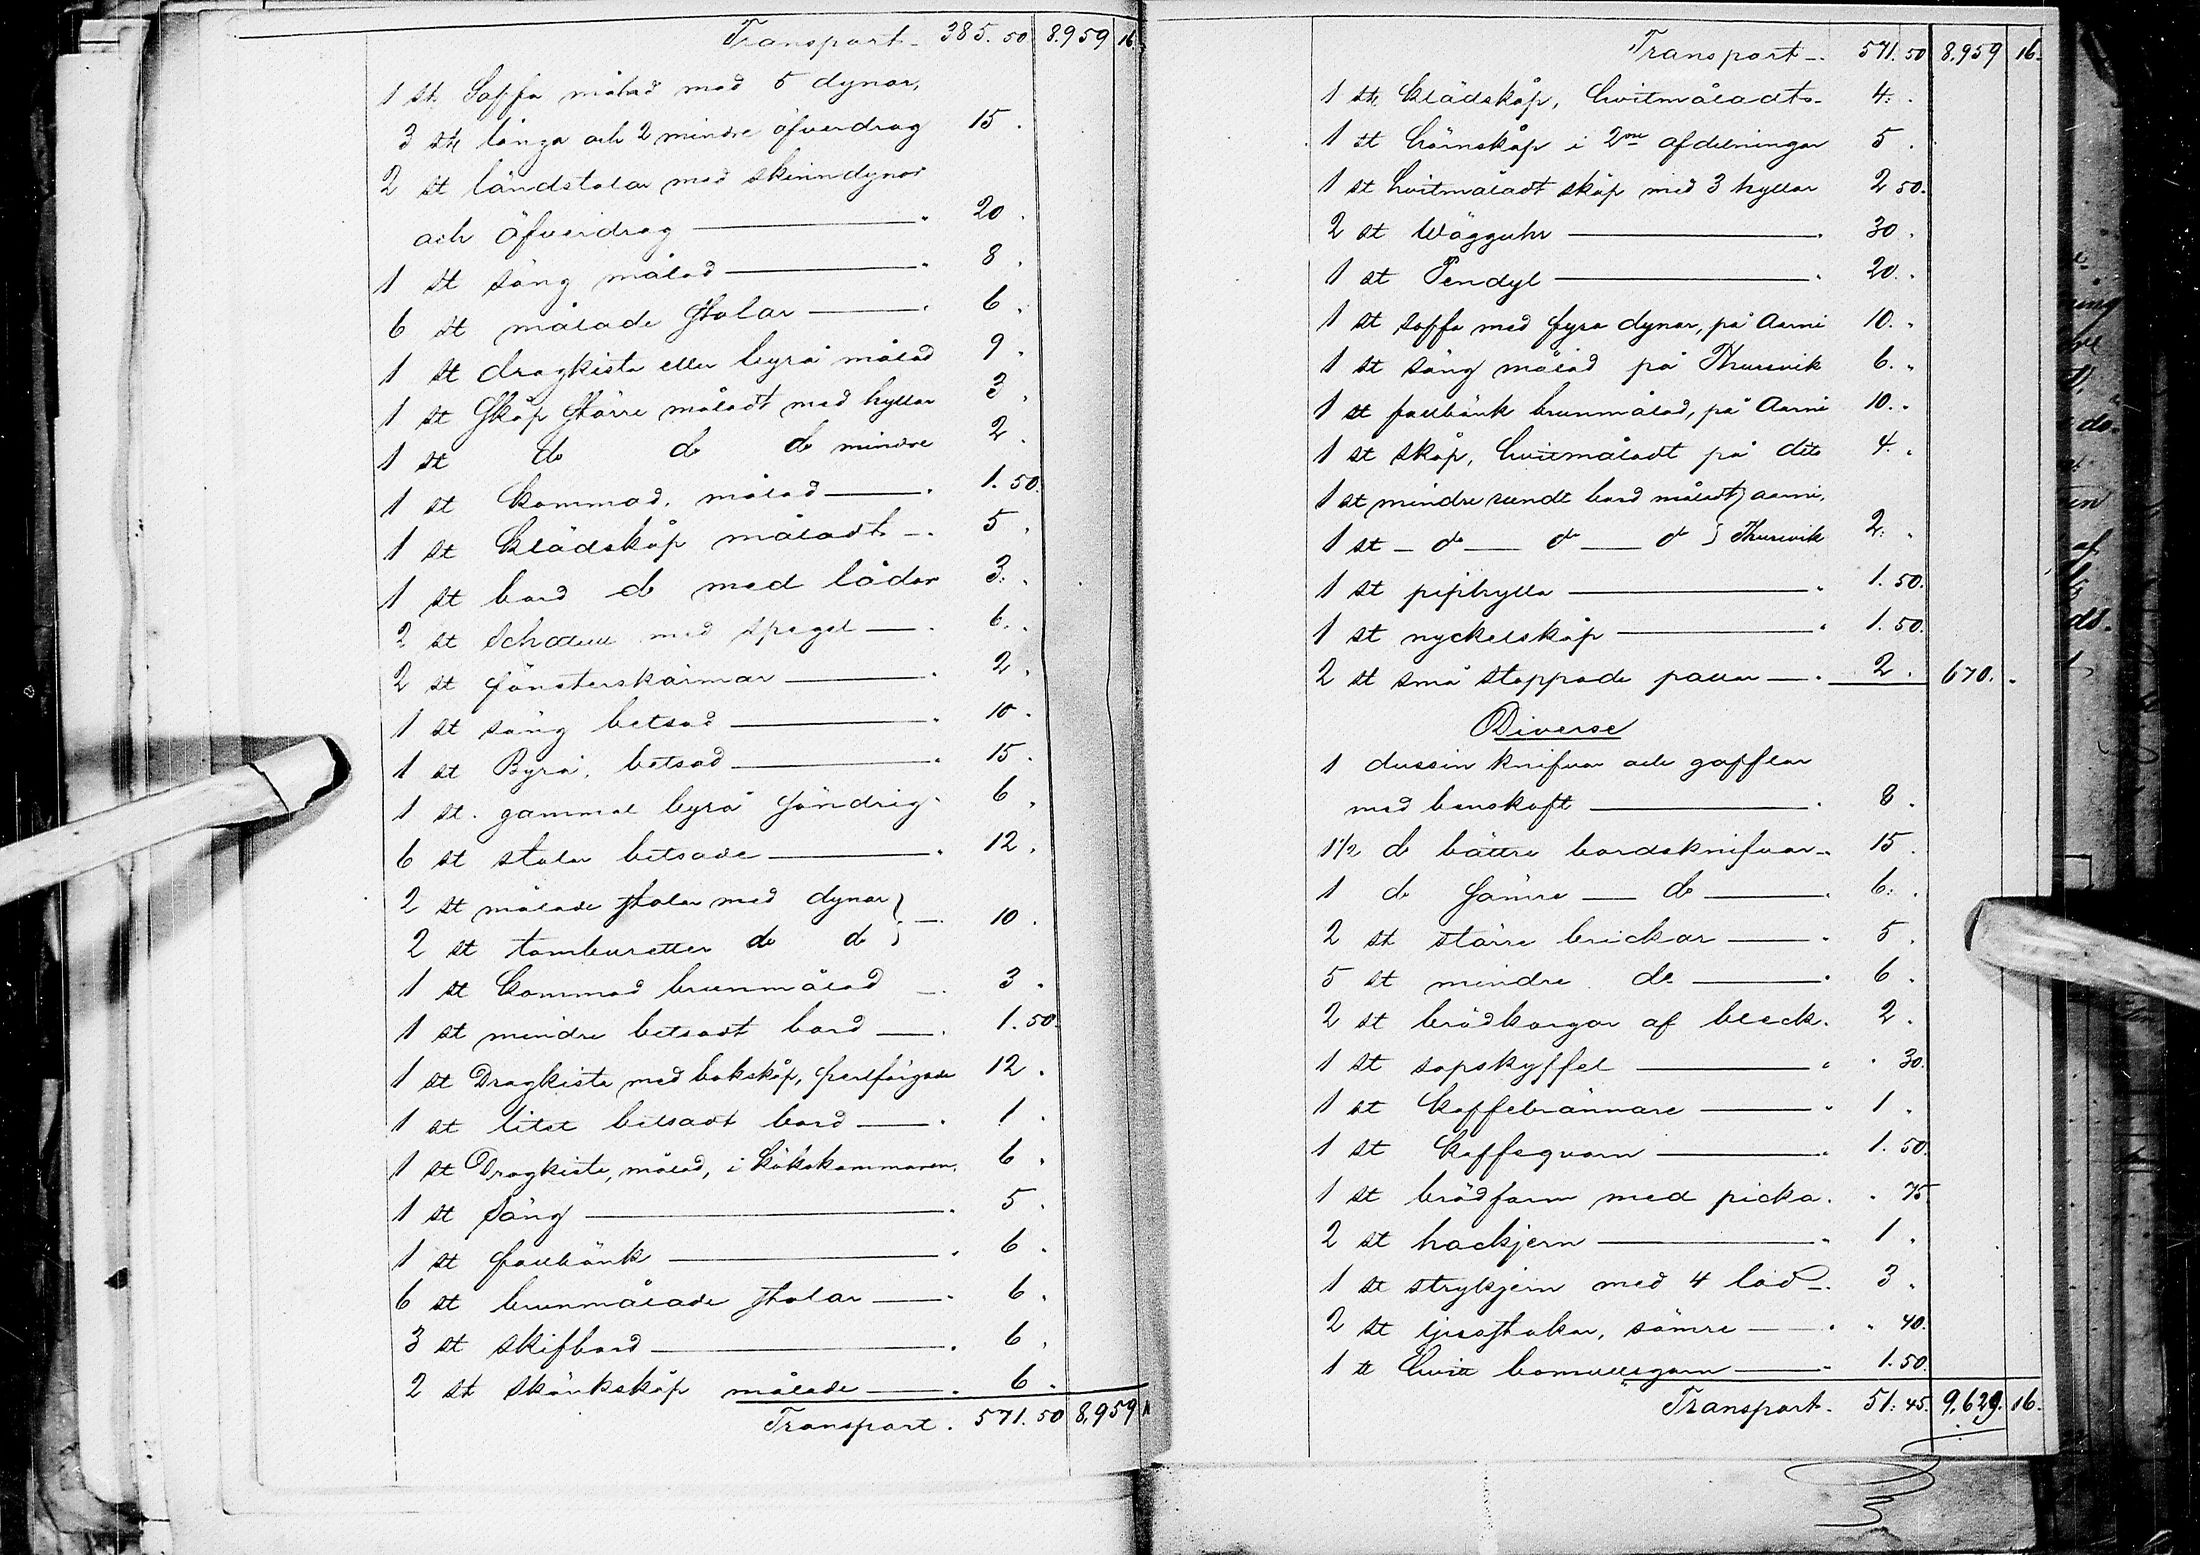 Transport. 385. 50 8.959 16
1 st Soffa målad med 5 dynor,
3 st långa och 2 mindre öfverdrag 15.
2 st ländstolar med skinndynor
och öfverdrag 20.
1 st säng målad 8.
6 st målade stolar 6.
1 st dragkista eller byrå målad 9.
1 st skåp större måladt med hyllor 3.
1 st do do do mindre 2.
1 st kommod, målad 1. 50.
1 st klädskåp måladt 5.
1 st bord do med lådor 3.
2 st Schatull med spegel 6.
2 st fönsterskärmar 2.
1 st säng betsad 10.
1 st Byrå, betsad 15.
1 st. gammal byrå söndrig 6.
6 st stolar betsade 12.
2 st målade stolar med dynor
2 st tamburetter do do } 10.
1 st kommod brunmålad 3.
1 st mindre betsadt bord 1. 50.
1 st Dragkista med bokskåp, perlfärgade 12.
1 st litet betsadt bord 1.
1 st Dragkista, målad, i kökskammaren. 6.
1 st säng 5.
1 st fällbänk 6.
6 st brunmålade stolar 6.
3 st skifbord 6.
2 st skänkskåp målade 6.
Transport. 571. 50 8,959 1
Transport. 571. 50 8,959 16.
1 st klädskåp, hvitmåladt 4.
1 st hörnskåp i 2ne afdelningar 5.
1 st hvitmåladt skåp med 3 hyllor 2 50.
2 st Wägguhr 30.
1 st Pendyl 20.
1 st soffa med fyra dynor, på Aarni 10.
1 st säng målad på Thuresvik 6.
1 st fällbänk brunmålad, på Aarni 10.
1 st skåp, hvitmåladt på dito 4.
1 st mindre rundt bord måladt } Aarni,
1 st do do do } Thuresvik 2.
1 st piphylla 1. 50.
1 st nyckelskåp 1. 50.
2 st små stoppade pallar 2. 670.
Diverse
1 dussin knifvar och gafflar
med benskaft 8.
1½ do bättre bordsknifvar 15.
1 do sämre do 6.
2 st större brickor 5.
5 st mindre do 6.
2 st brödkorgar af bleck. 2.
1 st sopskyffel 30.
1 st kaffebrännare 1.
1 st kaffeqvarn 1. 50.
1 st brödform med picka. 75
2 st hackjern 1.
1 st strykjern med 4 lod 3.
2 st ljusstakar, sämre 40.
1 ℔ hvitt bomullsgarn 1. 50.
Transport. 51. 45. 9,629. 16.